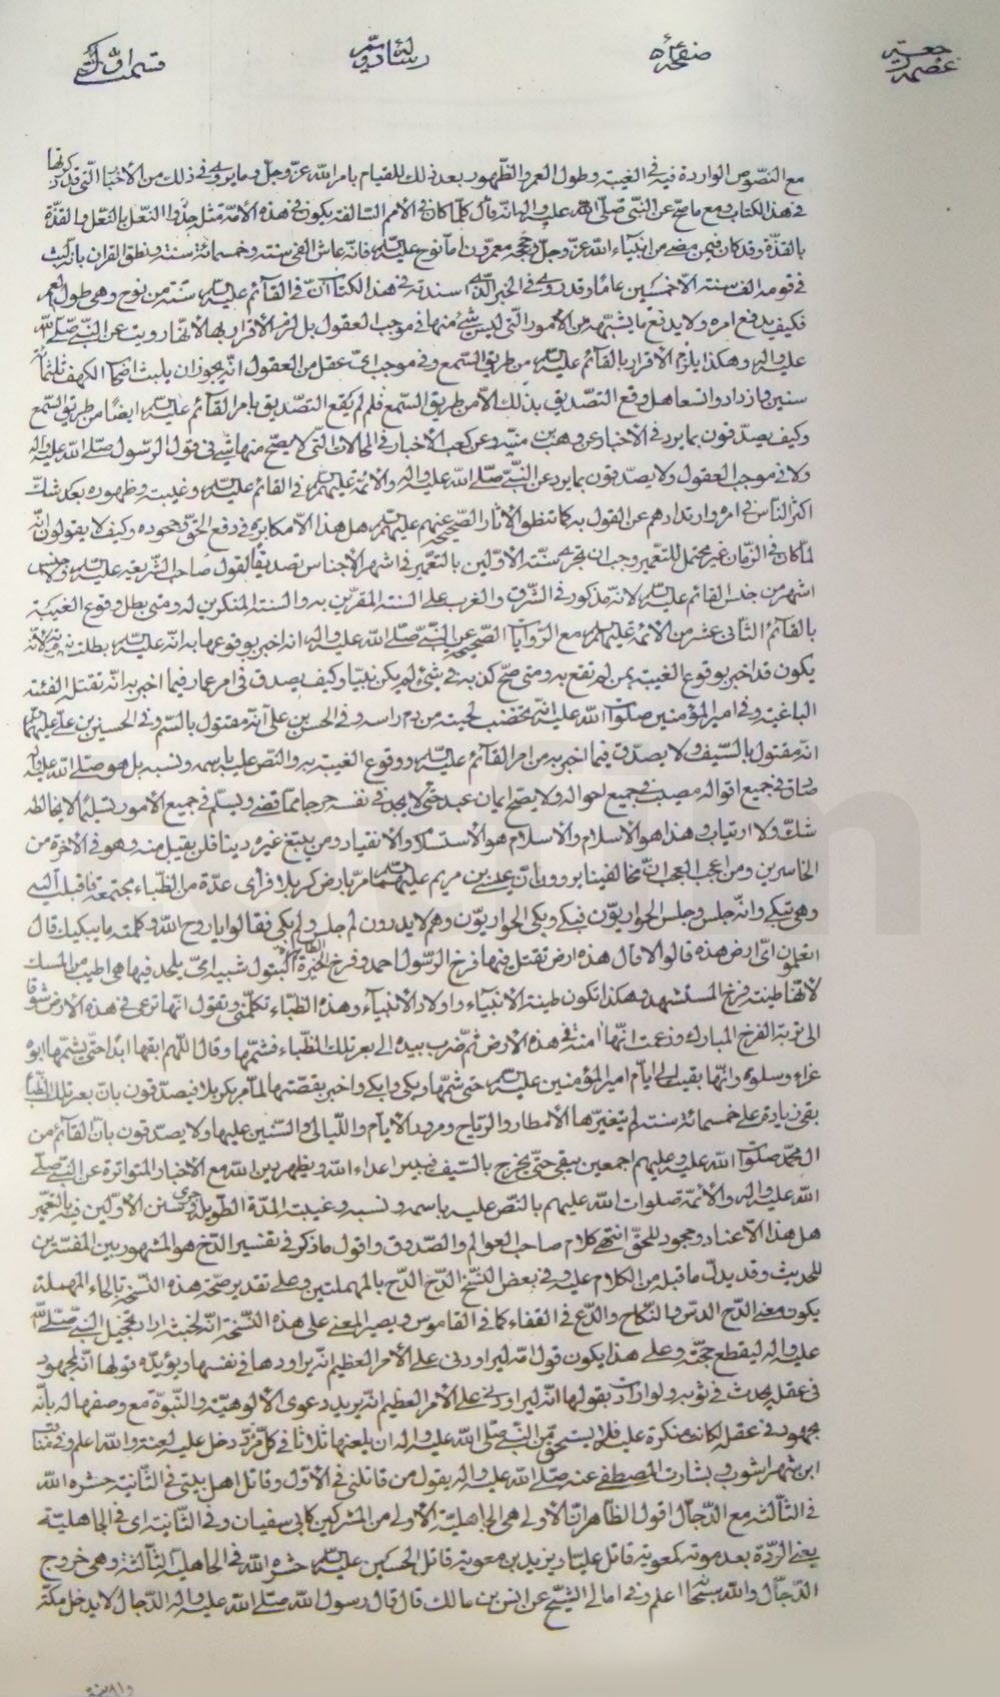 مع النصوص الواردة فيه فى الغيبة وطول العمر والظهور بعد ذلك للقيام بامر الله عزّ وجلّ وما يروى فى ذلك من الأخبار الّتى قد ذكرتها
فى هذا الكتاب ومع ما صحّ عن النّبى صلّى الله عليه واله انه قال كلّما كان فى الأمم السّالفة يكون فى هذه الأمّة مثله حذو النّعل بالنّعل والقذّة
بالقذّة وقد كان فيمن مضى من انبياء الله عزّ وجلّ وحججه معمّرون امّا نوح عليه السلم فانّه عاش الفى سنة وخمسمائة سنة ونطق القران بانه لبث
فى قومه الف سنة الا خمسين عامًا وقد روى فى الخبر الّذى اسندته فى هذا الكتاب انّ فى القآئم عليه السلم سنّة من نوح وهى طول العمر
فكيف يدفع امره ولا يدفع ما يشبهه من الأمور الّتى ليس شئ منها فى موجب العقول بل لزم الأقرار بها لأنّها رويت عن النّبى صلّى الله
عليه واله وهكذا يلزم الأقرار بالقآئم عليه السلم من طريق السّمع وفى موجب اىّ عقل من العقول انّه يجوز ان يلبث اصحاب الكهف ثلثمائة
سنين وازدادوا تسعا هل وقع التصديق بذلك الّا من طريق السّمع فلم لم يقع التصديق بامر القآئم عليه السلم ايضًا من طريق السّمع
وكيف يصدّقون بما يرد فى الأخبار عن وهب بن منبّه وعن كعب الأخبار فى المحالات الّتى لا يصحّ منها شئ فى قول الرّسول صلّى الله عليه واله
ولا فى موجب العقول ولا يصدّقون بما يرد عن النّبى صلّى الله عليه واله والأئمّة عليهم السلم فى القائم عليه السلم وغيبته وظهوره بعد شكّ
اكثر النّاس فى امره وارتدادهم عن القول به كما تنطق الأثار الصّحيحة عنهم عليهم السلم هل هذا الّا مكابرة فى دفع الحقّ وجحوده وكيف لا يقولون انّه
لمّا كان فى الزّمان غير محتمل للتّعمير وجب ان تجرى سنّة الأوّلين بالتّعمير فى اشهر الأجناس تصديقًا لقول صاحب الشّريعة عليه السلم ولا جنس
اشهر من جنس القائم عليه السلم لأنّه مذكور فى الشّرق والغرب على السنة المقرّين به والسنة المنكرين له ومتى بطل وقوع الغيبة
بالقآئم الثانى عشر من الأئمّة عليهم السلم مع الرّوايات الصّحيحة عن النّبى صلّى الله عليه واله انّه اخبر بوقوعها به انّه عليه السلم بطلت نبوّته لأنّه
يكون قد اخبر بوقوع الغيبة بمن لم تقع به ومتى صحّ كذبه فى شئ لم يكن نبيّا وكيف يصدق فى امر عمار فيما اخبر به انّه تقتله الفئة
الباغية وفى امير المؤمنين صلوات الله عليه انّه تخضب لحيته من دم راسه وفى الحسن بن على انّه مقتول بالسّم وفى الحسين بن على عليهما السلم
انّه مقتول بالسّيف ولا يصدّق فيما اخبر به من امر القآئم عليه السلم ووقوع الغيبة به والنّص عليه باسمه ونسبه بل هو صلّى الله عليه واله
صادق فى جميع اقواله مصيب فى جميع احواله ولا يصحّ ايمان عبد حتّى لا يجد فى نفسه حرجا ممّا قضى ويسلّم فى جميع الأمور تسليمًا لا يخالطه
شكّ ولا ارتياب وهذا هو الأسلام والأسلام هو الأستسلام والأنقياد ومن يبتغ غيره دينا فلن يقبل منه وهو فى الأخرة من
الخاسرين ومن اعجب العجب انّ مخالفينا يروون انّ عيسى بن مريم عليهما السلم مرّ بارض كربلا فرأى عدّة من الظّباء مجتمعة فاقبلت اليه
وهى تبكى وانّه جلس وجلس الحواريّون فبكى وبكى الحواريّون وهم لا يدرون لم جلس ولم بكى فقالوا يا روح الله وكلمته ما يبكيك قال
اتعلمون اىّ ارض هذه قالوا لا قال هذه ارض تقتل فيها فرخ الرّسول احمد وفرخ الخيّرة الطاهرة البتول شبيهة امّى يلحد فيها هى اطيب من المسك
لأنّها طينة فرخ المستشهد وهكذا تكون طينة الأنبياء واولاد الأنبيآء وهذه الظّباء تكلّمنى وتقول انّها ترعى فى هذه الأرض شوقا
الى تربة الفرخ المبارك وزعمت انّها امنة فى هذه الأرض ثمّ ضرب بيده الى بعر تلك الظّباء فشمّها وقال اللهم ابقها ابدًا حتّى يشمّها ابوه
فتكون له عزاء وسلوة وانّها بقيت الى ايّام امير المؤمنين عليه السلم حتى شمّها وبكى وابكى واخبر بقصّتها لمّا مرّ بكربلا فيصدّقون بانّ بعر تلك الظّباء
بقى زيادة على خمسمائة سنة لم يتغيّرها الأمطار والرّياح ومرور الأيّام واللّيالى والسّنين عليها ولا يصدّقون بانّ القآئم من
ال محمّد صلوات الله عليه وعليهم اجمعين يبقى حتّى يخرج بالسّيف فيبير اعداء الله ويظهر دين الله مع الأخبار المتواترة عن النّبى صلّى
الله عليه واله والأئمّة صلوات الله عليهم بالنّص عليه باسمه ونسبه وغيبته المدّة الطّويلة وجرى سنن الأوّلين فيه بالتّعمير
هل هذا الّا عناد وجحود للحقّ انتهى كلام صاحب العوالم والصّدوق واقول ما ذكر فى تفسير الدّخ هو المشهور بين المفسّرين
للحديث وقد يدلّ ما قبله من الكلام عليه وفى بعض النّسخ الدّح الدّح بالمهملتين وعلى تقدير صحّة هذه النّسخة بالحاء المهملة
يكون معنى الدّح الدسّ والنّكاح والدّع فى القفاء كما فى القاموس ويصير المعنى على هذه النّسخة انّه لخبثه اراد تخجيل النّبى صلّى الله
عليه واله ليقطع حجّته وعلى هذا يكون قول امّه ليراودنى على الأمر العظيم انّه يراودها فى نفسها ويؤيّده قولها انّه لمجهود
فى عقله يحدث فى ثوبه ولو ارادت بقولها انّه ليراودنى على الأمر العظيم انّه يريد دعوى الألوهيّة والنّبوّة مع وصفها له بانّه
مجهود فى عقله لكانت منكرة عليه فلا يستحقّ من النّبى صلّى الله عليه واله ان يلعنها ثلاثا فى كلّ مرّة دخل عليه لعنة والله اعلم وفى مناقب
ابن شهراشوب وبشارة المصطفى عنه صلّى الله عليه واله يقول من قاتلنى فى الأولى وقاتل اهل بيتى فى الثّانية حشره الله
فى الثّالثة مع الدّجّال اقول الظّاهر انّ الأولى هى الجاهليّة الأولى من المشركين كابى سفيان وفى الثّانية اى فى الجاهليّة
يعنى الرّدّة بعد موته كمعوية قاتل عليّا ويزيد بن معوية قاتل الحسين عليه السلم حشره الله فى الجاهليّة الثّالثة وهى خروج
الدّجّال والله سبحانه اعلم وفى امالى الشّيخ عن انس بن مالك قال قال رسول الله صلّى الله عليه واله الدّجال لا يدخل مكّة